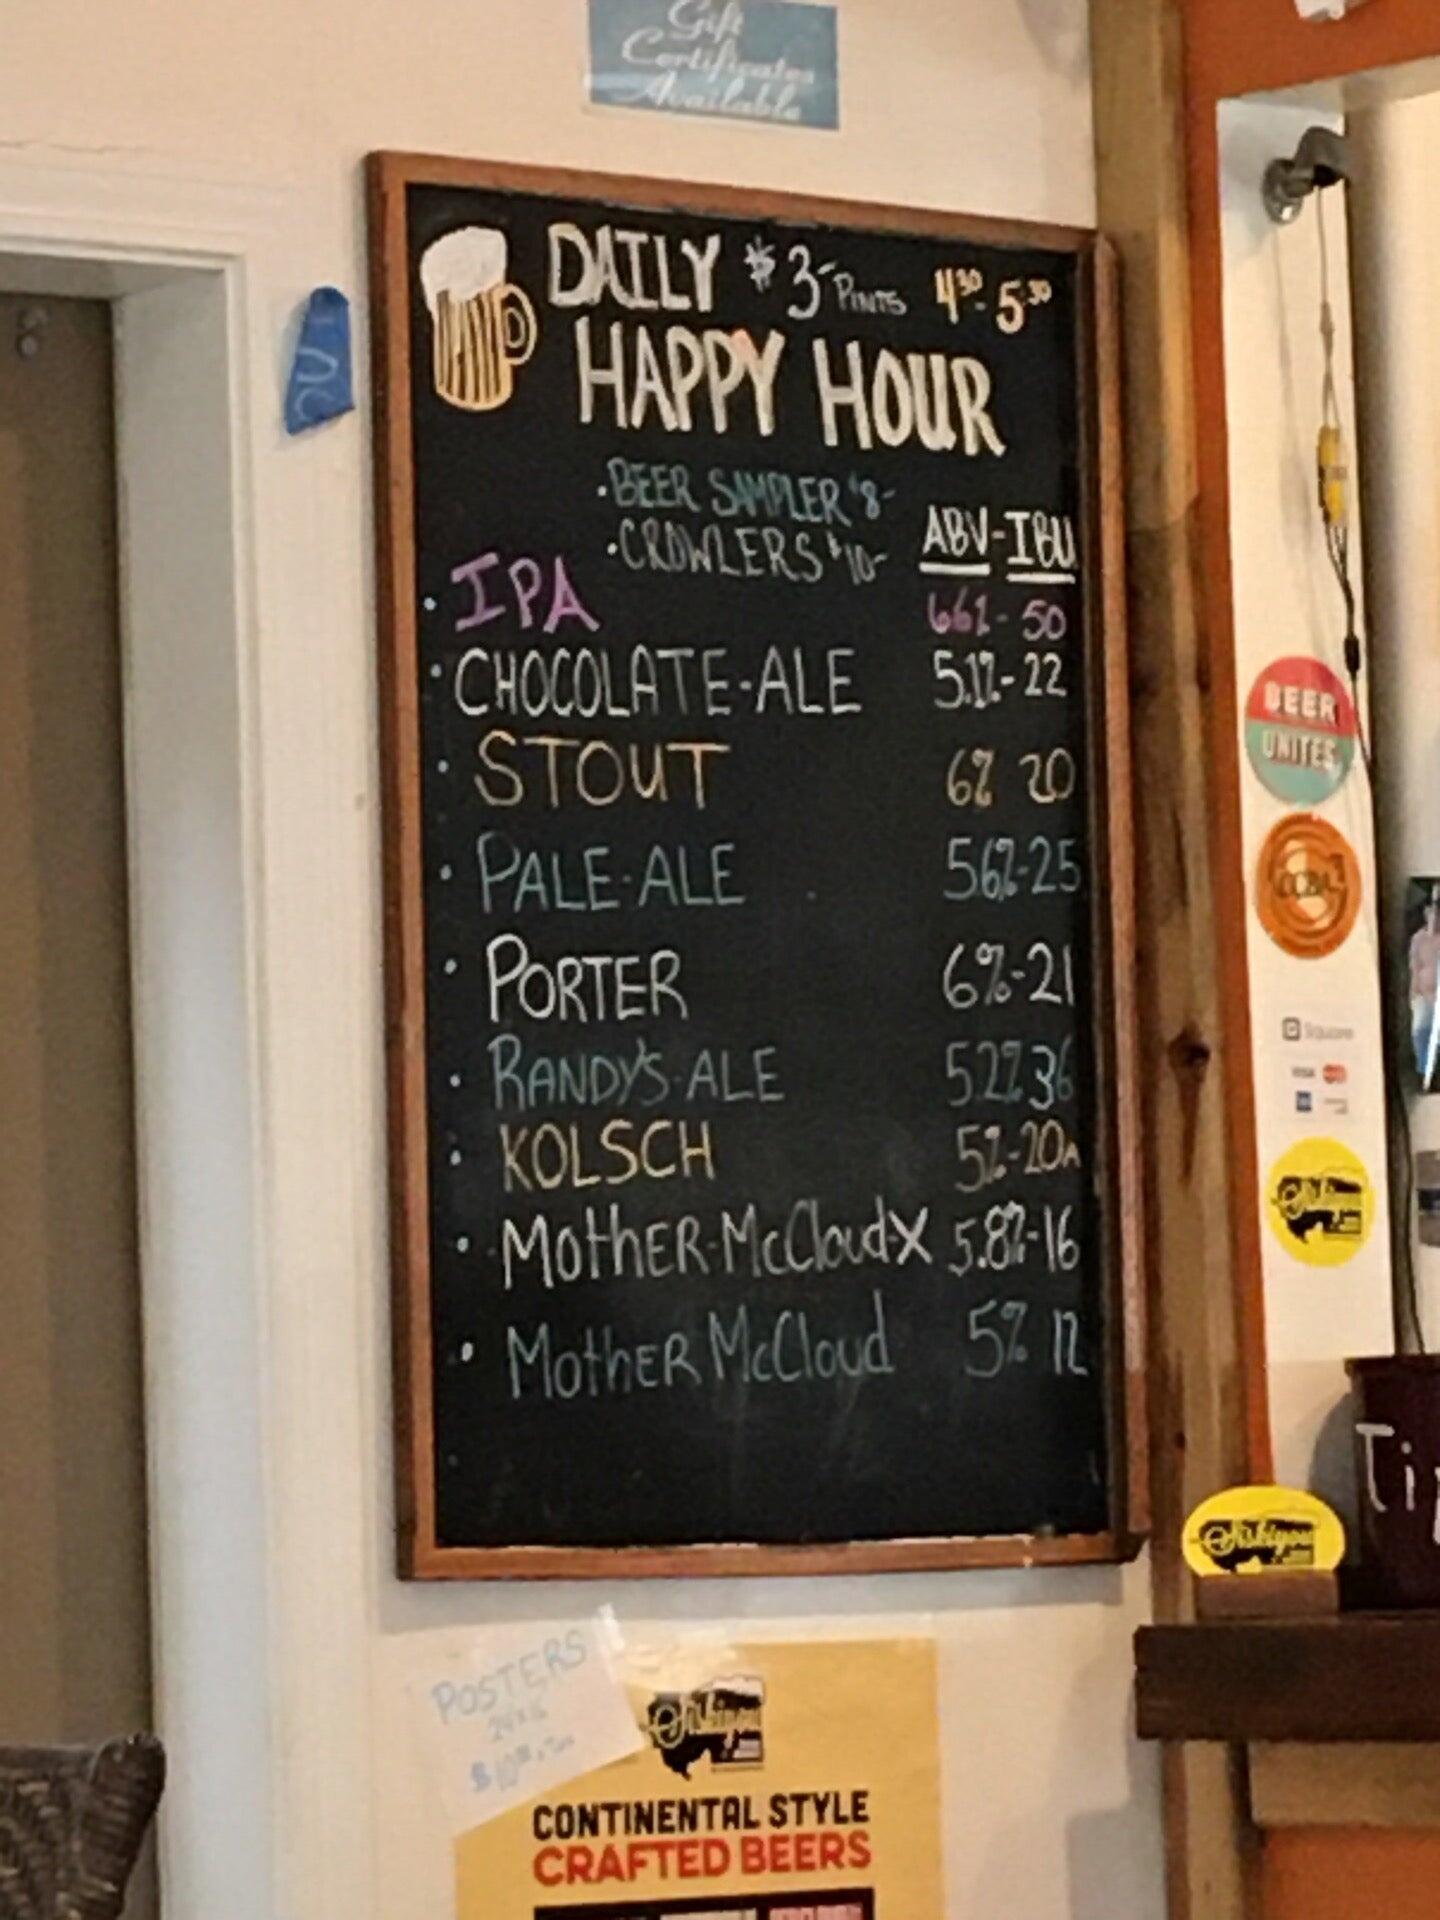 Gift
Certificates
Available
DAILY $3- PINTS 4:30-5:30
HAPPY HOUR
•BEER SAMPLER $8-
•CROWLERS $10-
ABV-IBU
• IPA 66%-50
• CHOCOLATE-ALE 5.1%-22
• STOUT 6% 20
• PALE-ALE 5.6%-25
• PORTER 6%-21
• RANDY'S-ALE 5.2% 36
• KOLSCH 5%-20
• MOTHER-McCloud-X 5.8%-16
• MOTHER McCloud 5% 12
BEER
UNITES
Square
VISA
Siskiyou
Tip
POSTERS
$10.00 + Tax
Siskiyou
CONTINENTAL STYLE
CRAFTED BEERS